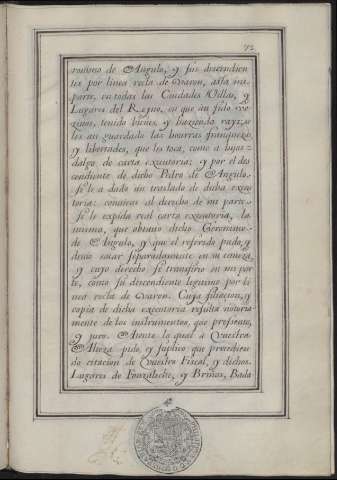 72
ronimo de Angulo, y sus descendien
tes por linea recta de Varon, asta mi
parte, en todas las Ciudades Villas, y
Lugares del Reyno, en que an sido ve
zinos, tenido bienes, y haziendo rayz, se
les an guardado las honrras franquezas
y libertades, que les toca, como a hijos
dalgo de carta executoria: y por el des
cendiente de dicho Pedro de Angulo
se le a dado un traslado de dicha execu
toria: conviene al derecho de mi parte
se le expida real carta executoria, la
misma, que obtuvo dicho Geronimo
de Angulo, y que el referido pudo, y
devio sacar separadamente en su cabeza,
y cuyo derecho se transfirio en mi par
te, como su descendiente legitimo por li
nea recta de Varon. Cuya filiacion, y
copia de dicha executoria resulta notoria
mente de los instrumentos, que presento,
y juro. Atento lo qual a Vuestra
Alteza pido, y suplico que precedien
do citacion de Vuestro Fiscal, y dichos
Lugares de Fonzaleche, y Briñas, Bada